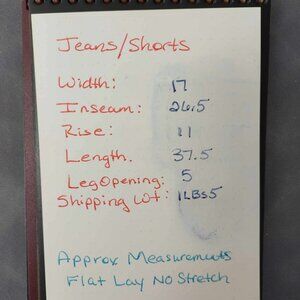 Jeans/Shorts
Width: 17
Inseam: 26.5
Rise: 11
Length. 37.5
Leg Opening: 5
Shipping Wt: 1LBS5
Approx Measurements
Flat Lay No Stretch